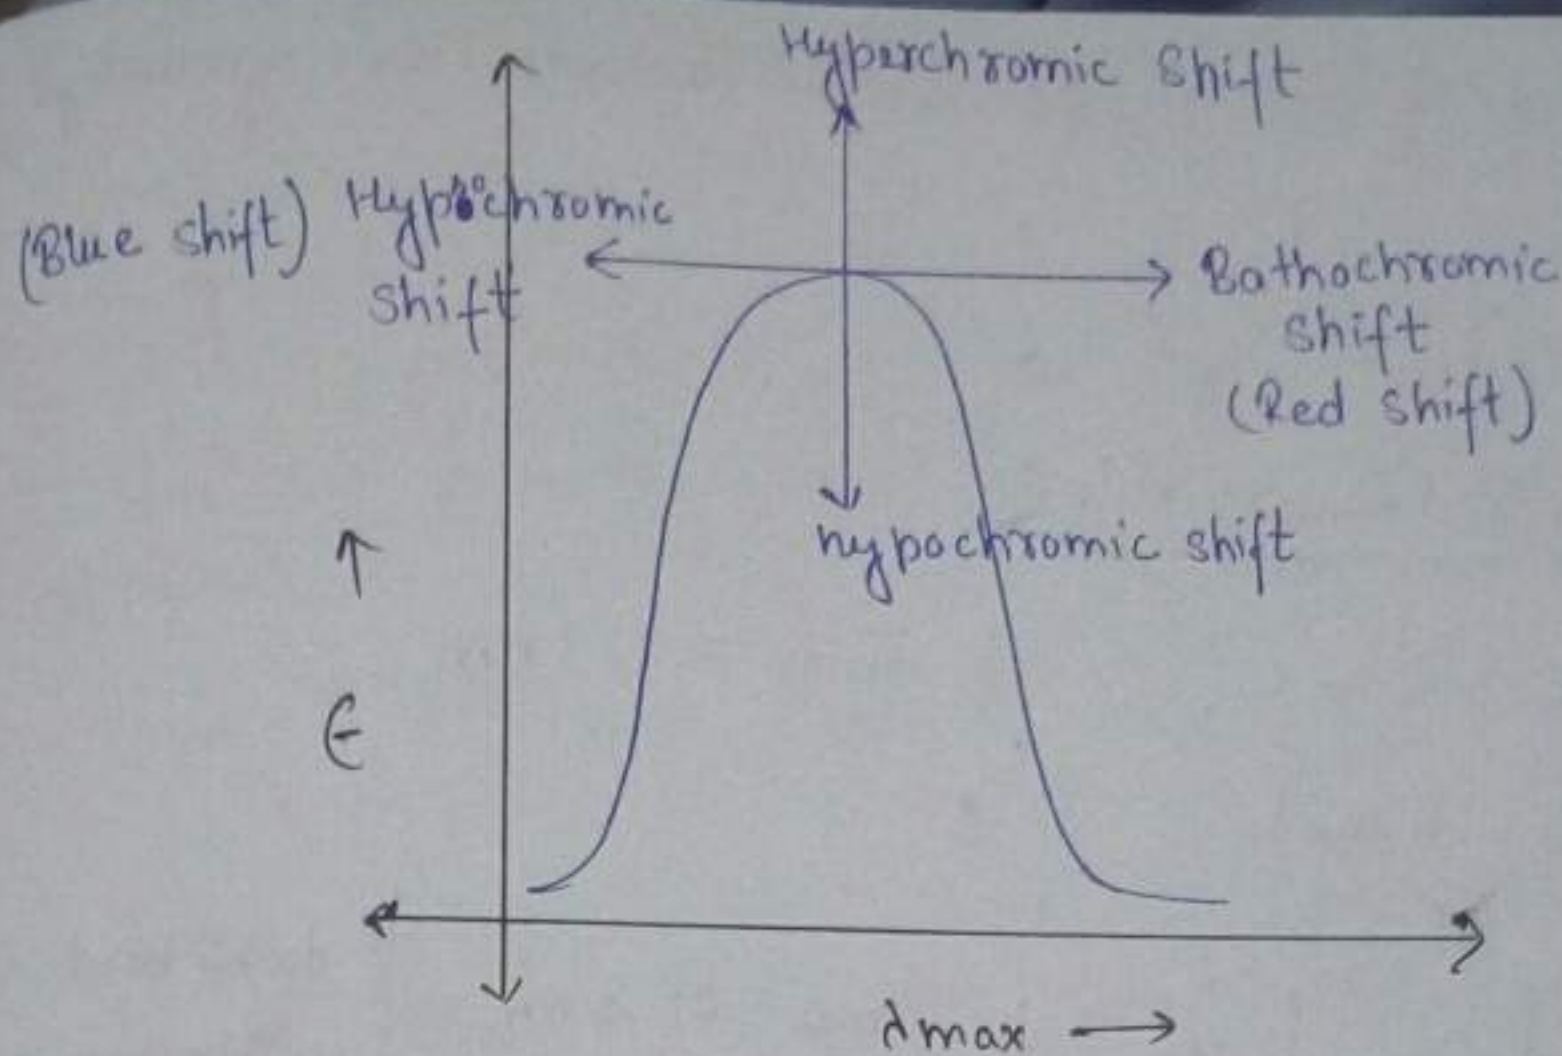 Hyperchromic Shift
(Blue shift) Hypochromic
shift
Bathochromic
shift
(Red shift)
hypochromic shift
↑
ϵ
λmax →